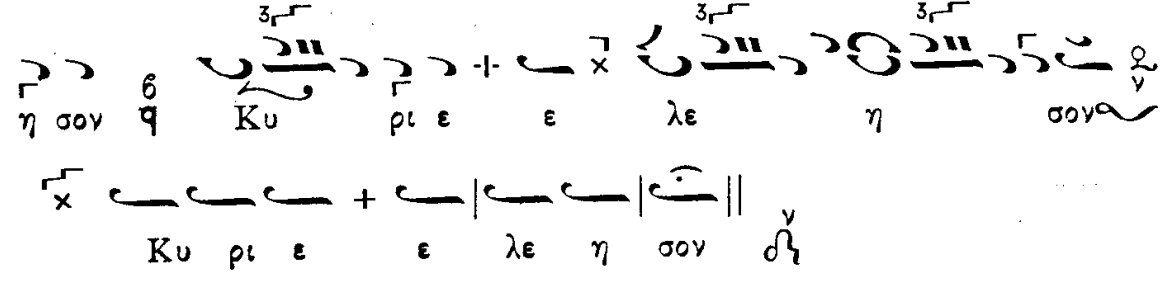 η σον Κυ ρι ε ε λε η σον
Κυ ρι ε ε λε η σον